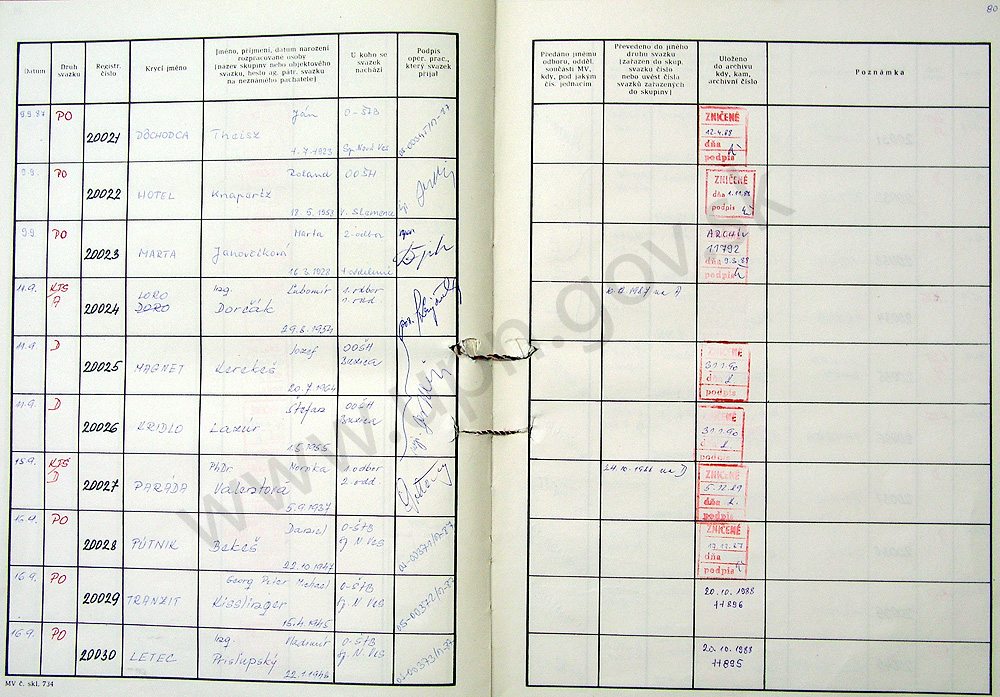 80
Datum
Druh svazku
Registr. číslo
Krycí jméno
Jméno, příjmení, datum narození
rozpracované osoby
(název skupiny nebo objektového
svazku, heslo ag. pátr. svazku
na neznámého pachatele)
U koho se
svazek
nachází
Podpis
oper. prac.,
který svazek
přijal
Předáno jinému
odboru, odděl.
součásti MV,
kdy, pod jakým
čís. jednacím
Převedeno do jiného
druhu svazku
(zařazen do skup.
svazku číslo
nebo uvést čísla
svazků zařazených
do skupiny)
Uloženo
do archivu
kdy, kam,
archivní číslo
Poznámka
9.9.87 PO Ján O-ŠTB
20021 DÔCHODCA Theisz
1.7.1923 Sp. Nová Ves
ZNIČENÉ
12.4.89
dňa
podpis
9.9. PO Roland OOŠH
20022 HOTEL Knapartz
V. Slamenec
ZNIČENÉ
dňa 1.11.88
podpis
9.9. PO Marta 2. odbor
20023 MARTA Janovčíková
16.3.1928 1. oddelenie
ARCHÍV
11792
dňa 9.3.88
podpis
11.9. KTS A LORO Ing. Ľubomír 1. odbor
20024 DORO Dorčák 1. odd.
29.8.1954
11.9. D Jozef OOŠH
20025 MAGNET Kerekeš
20.7.1964
31.1.90
dňa
podpis
11.9. D Štefan OOŠH
20026 KRIDLO Lazúr
ZNIČENÉ
31.1.90
podpis
15.9. KTS D PhDr. Monika 1. odbor
20027 PARÁDA Valentová 2. odd.
5.9.1937
24.10.1988 na D
ZNIČENÉ
5.12.89
dňa
podpis
PO Daniel O-ŠTB
20028 PÚTNIK Bekeš Sp. N. Ves
22.10.1947 05-00371/N-87
ZNIČENÉ
dňa
podpis
16.9. PO Georg Peter Michael O-ŠTB
20029 TRANZIT Kisslinger Sp. N. Ves
15.4.1945 05-00372/N-87
20.10.1988
11896
16.9. PO Ing. Vladimír O-ŠTB
20030 LETEC Prislupský Sp. N. Ves
22.1.1946 05-00373/N-87
20.10.1988
11895
MV č. skl. 734
www.upn.gov.sk